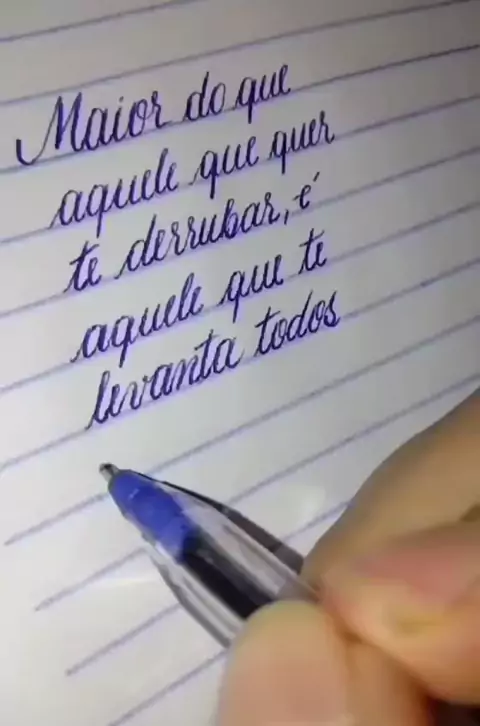 Maior do que
aquele que quer
te derrubar, é
aquele que te
levanta todos